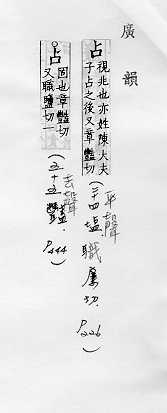 廣韻
占視兆也亦姓陳大夫
子占之後又章豔切
(二十四鹽,職廉切,P226)
平聲
占固也章豔切
又職鹽切一
(五十五豔,P444)
去聲